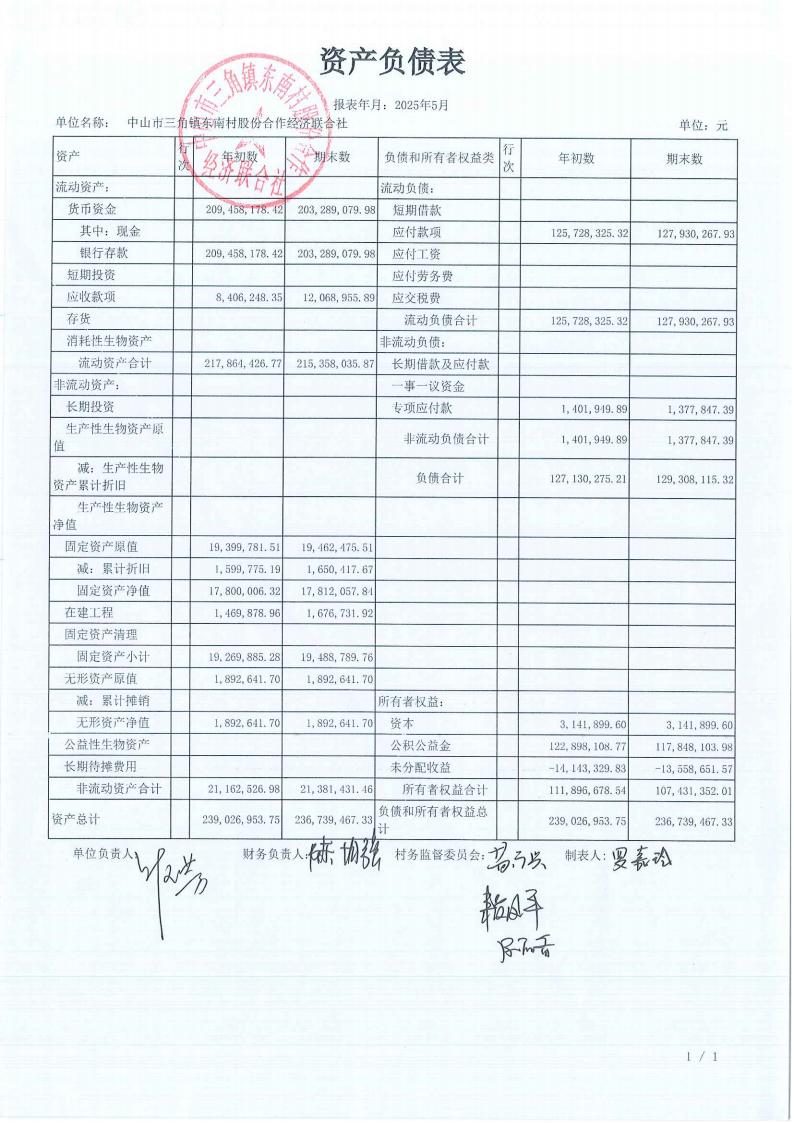 资产负债表
报表年月：2025年5月
单位名称： 中山市三角镇东南村股份合作经济联合社 单位：元
中山市三角镇东南村股份合作经济联合社
资产 行次 年初数 期末数 负债和所有者权益类 行次 年初数 期末数
流动资产： 流动负债：
货币资金 209,458,178.42 203,289,079.98 短期借款
其中：现金 应付款项 125,728,325.32 127,930,267.93
银行存款 209,458,178.42 203,289,079.98 应付工资
短期投资 应付劳务费
应收款项 8,406,248.35 12,068,955.89 应交税费
存货 流动负债合计 125,728,325.32 127,930,267.93
消耗性生物资产 非流动负债：
流动资产合计 217,864,426.77 215,358,035.87 长期借款及应付款
非流动资产： 一事一议资金
长期投资 专项应付款 1,401,949.89 1,377,847.39
生产性生物资产原值 非流动负债合计 1,401,949.89 1,377,847.39
减：生产性生物资产累计折旧 负债合计 127,130,275.21 129,308,115.32
生产性生物资产净值
固定资产原值 19,399,781.51 19,462,475.51
减：累计折旧 1,599,775.19 1,650,417.67
固定资产净值 17,800,006.32 17,812,057.84
在建工程 1,469,878.96 1,676,731.92
固定资产清理
固定资产小计 19,269,885.28 19,488,789.76
无形资产原值 1,892,641.70 1,892,641.70
减：累计摊销 所有者权益：
无形资产净值 1,892,641.70 1,892,641.70 资本 3,141,899.60 3,141,899.60
公益性生物资产 公积公益金 122,898,108.77 117,848,103.98
长期待摊费用 未分配收益 -14,143,329.83 -13,558,651.57
非流动资产合计 21,162,526.98 21,381,431.46 所有者权益合计 111,896,678.54 107,431,352.01
资产总计 239,026,953.75 236,739,467.33 负债和所有者权益总计 239,026,953.75 236,739,467.33
单位负责人： 财务负责人： 村务监督委员会： 制表人：罗嘉玲
1 / 1